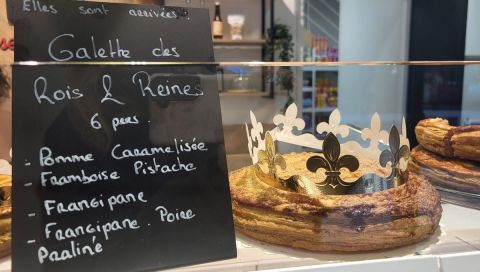 Elles sont arrivées.
Galette des
Rois & Reines
6 pers.
- Pomme Caramelisée
- Framboise Pistache
- Frangipane
- Frangipane. Poire
Praliné